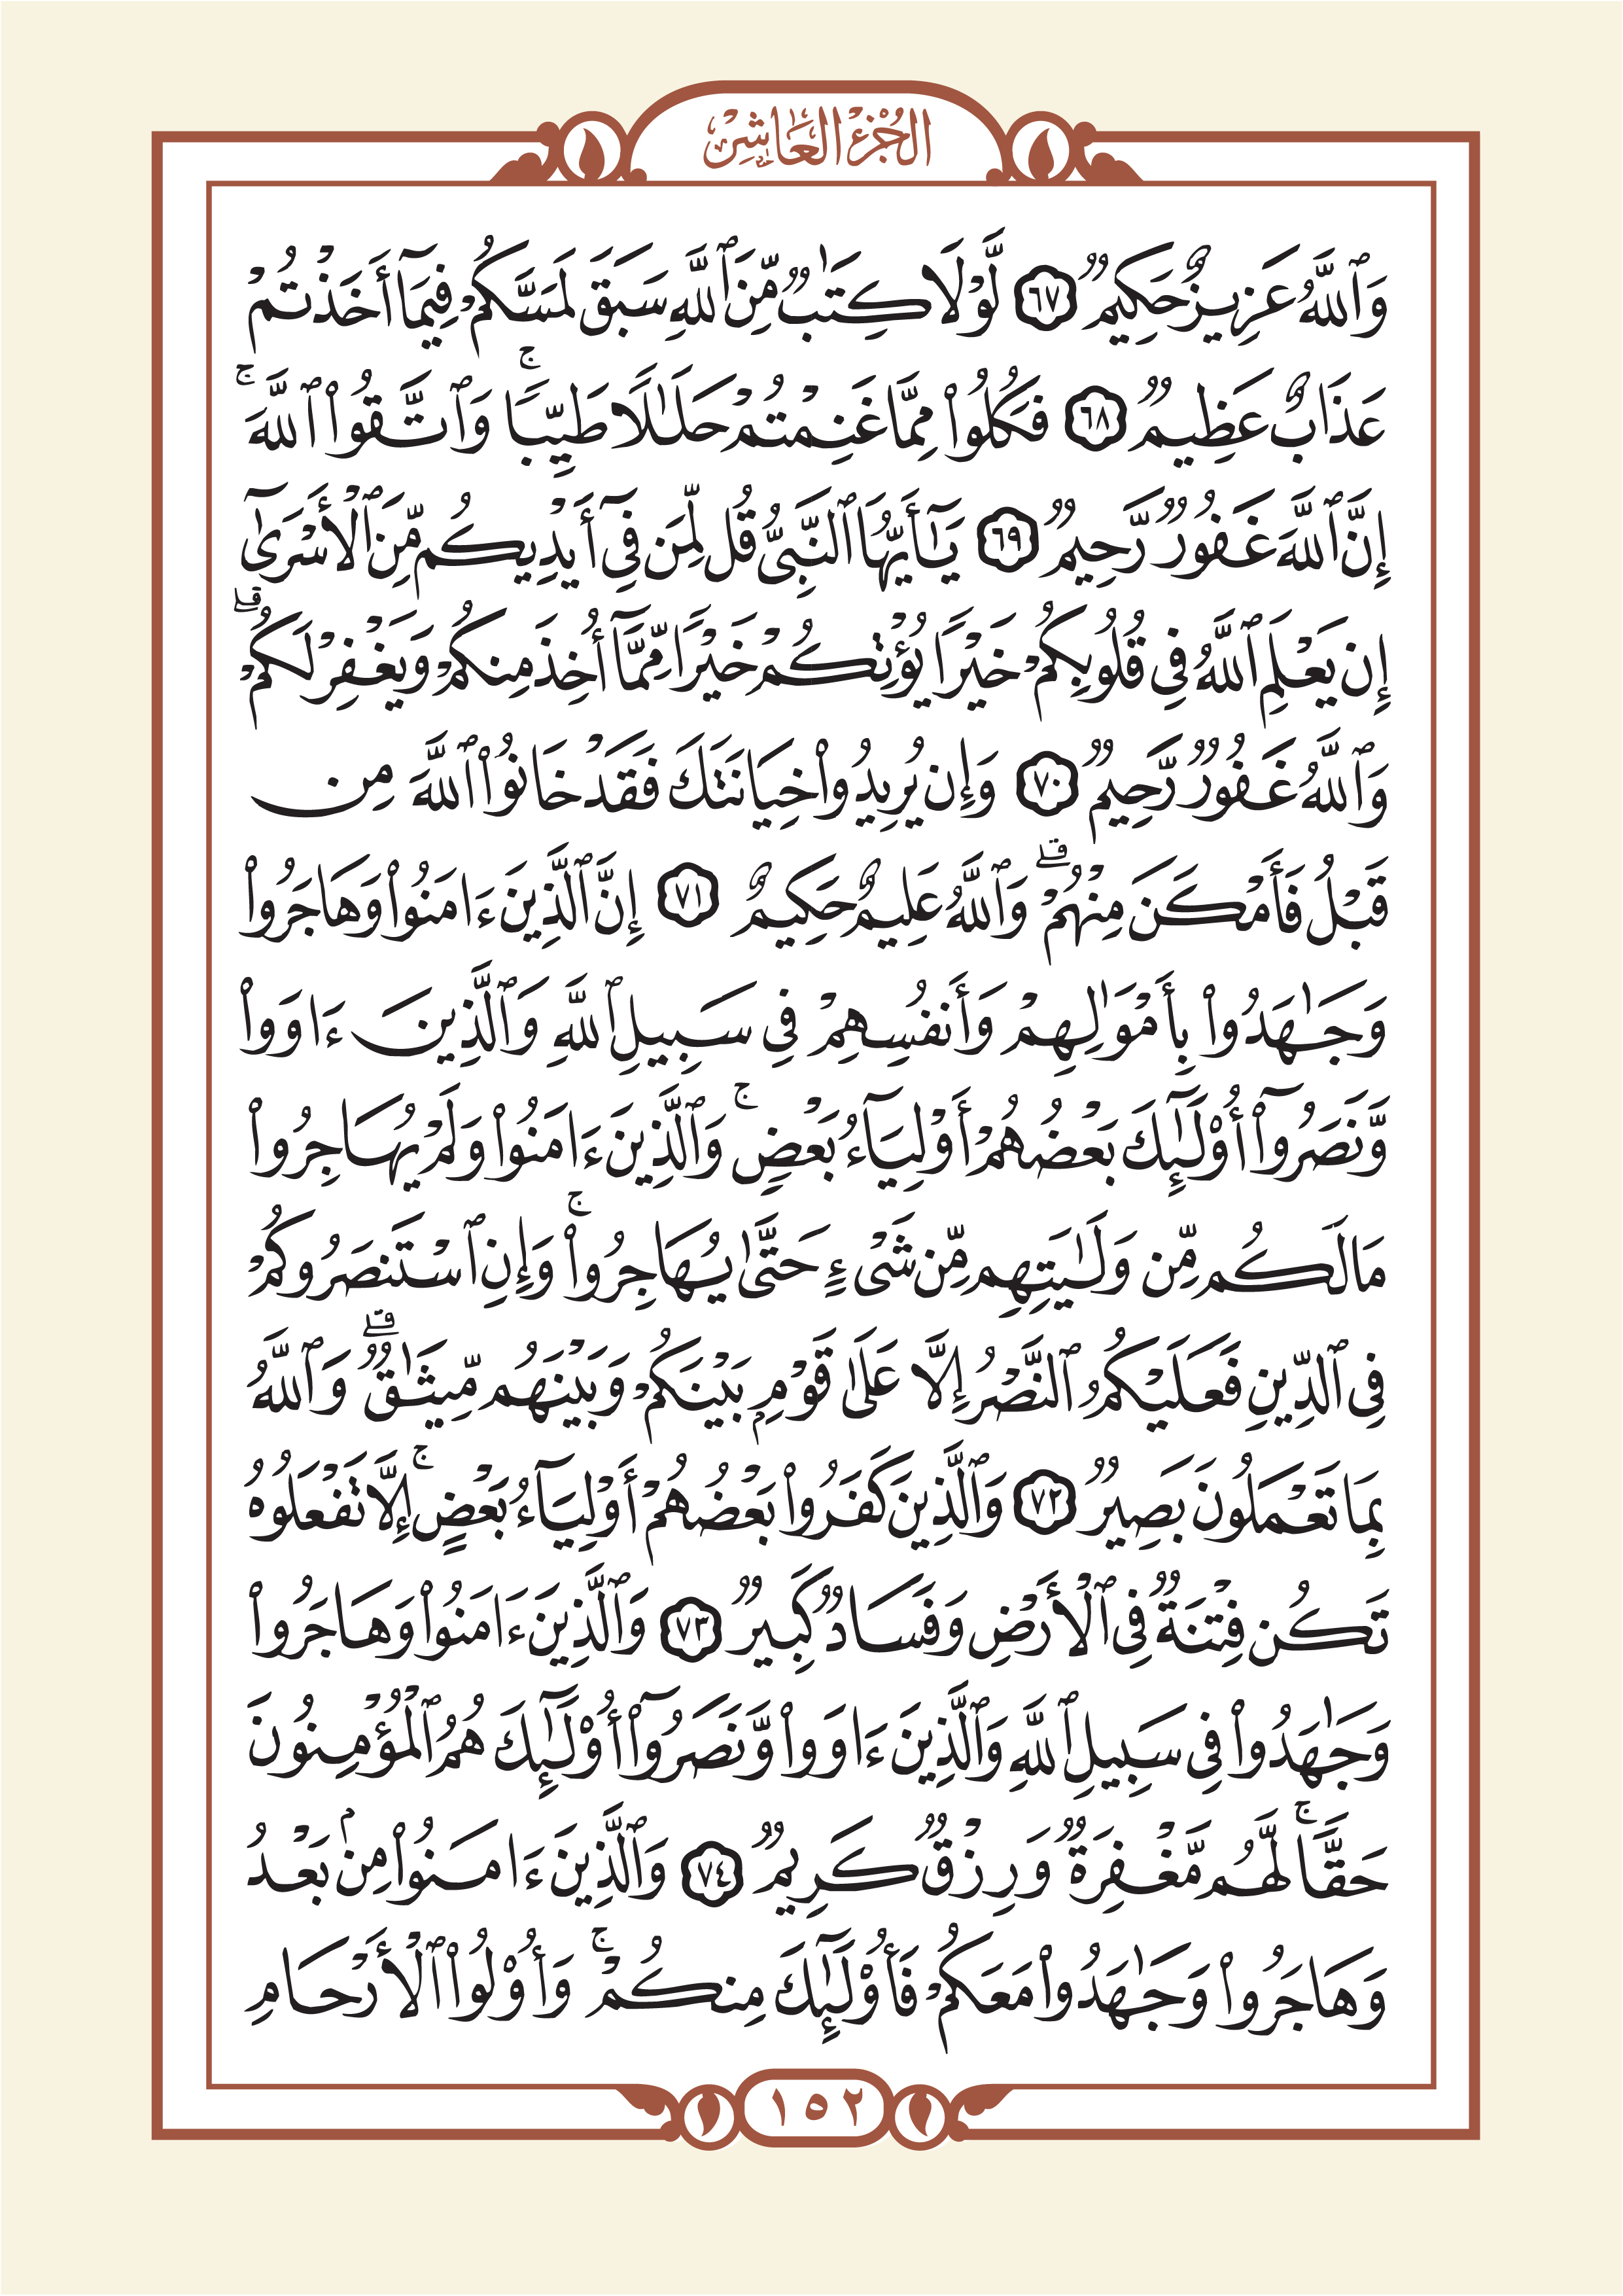 الجُزْءُ العَاشِرُ
وَٱللَّهُ عَزِيزٌ حَكِيمٌ ٦٧ لَّوْلَا كِتَٰبٌ مِّنَ ٱللَّهِ سَبَقَ لَمَسَّكُمْ فِيمَآ أَخَذْتُمْ
عَذَابٌ عَظِيمٌ ٦٨ فَكُلُوا۟ مِمَّا غَنِمْتُمْ حَلَٰلًا طَيِّبًا ۚ وَٱتَّقُوا۟ ٱللَّهَ ۚ
إِنَّ ٱللَّهَ غَفُورٌ رَّحِيمٌ ٦٩ يَٰٓأَيُّهَا ٱلنَّبِىُّ قُل لِّمَن فِىٓ أَيْدِيكُم مِّنَ ٱلْأَسْرَىٰٓ
إِن يَعْلَمِ ٱللَّهُ فِى قُلُوبِكُمْ خَيْرًا يُؤْتِكُمْ خَيْرًا مِّمَّآ أُخِذَ مِنكُمْ وَيَغْفِرْ لَكُمْ ۗ
وَٱللَّهُ غَفُورٌ رَّحِيمٌ ٧٠ وَإِن يُرِيدُوا۟ خِيَانَتَكَ فَقَدْ خَانُوا۟ ٱللَّهَ مِن
قَبْلُ فَأَمْكَنَ مِنْهُمْ ۗ وَٱللَّهُ عَلِيمٌ حَكِيمٌ ٧١ إِنَّ ٱلَّذِينَ ءَامَنُوا۟ وَهَاجَرُوا۟
وَجَٰهَدُوا۟ بِأَمْوَٰلِهِمْ وَأَنفُسِهِمْ فِى سَبِيلِ ٱللَّهِ وَٱلَّذِينَ ءَاوَوا۟
وَّنَصَرُوٓا۟ أُو۟لَٰٓئِكَ بَعْضُهُمْ أَوْلِيَآءُ بَعْضٍ ۚ وَٱلَّذِينَ ءَامَنُوا۟ وَلَمْ يُهَاجِرُوا۟
مَا لَكُم مِّن وَلَٰيَتِهِم مِّن شَىْءٍ حَتَّىٰ يُهَاجِرُوا۟ ۚ وَإِنِ ٱسْتَنصَرُوكُمْ
فِى ٱلدِّينِ فَعَلَيْكُمُ ٱلنَّصْرُ إِلَّا عَلَىٰ قَوْمٍۭ بَيْنَكُمْ وَبَيْنَهُم مِّيثَٰقٌ ۗ وَٱللَّهُ
بِمَا تَعْمَلُونَ بَصِيرٌ ٧٢ وَٱلَّذِينَ كَفَرُوا۟ بَعْضُهُمْ أَوْلِيَآءُ بَعْضٍ ۚ إِلَّا تَفْعَلُوهُ
تَكُن فِتْنَةٌ فِى ٱلْأَرْضِ وَفَسَادٌ كَبِيرٌ ٧٣ وَٱلَّذِينَ ءَامَنُوا۟ وَهَاجَرُوا۟
وَجَٰهَدُوا۟ فِى سَبِيلِ ٱللَّهِ وَٱلَّذِينَ ءَاوَوا۟ وَّنَصَرُوٓا۟ أُو۟لَٰٓئِكَ هُمُ ٱلْمُؤْمِنُونَ
حَقًّا ۚ لَّهُم مَّغْفِرَةٌ وَرِزْقٌ كَرِيمٌ ٧٤ وَٱلَّذِينَ ءَامَنُوا۟ مِنۢ بَعْدُ
وَهَاجَرُوا۟ وَجَٰهَدُوا۟ مَعَكُمْ فَأُو۟لَٰٓئِكَ مِنكُمْ ۚ وَأُو۟لُوا۟ ٱلْأَرْحَامِ
١٥٢